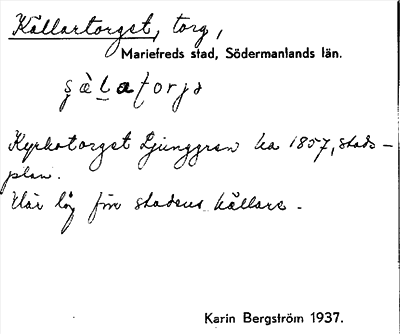 Källartorget, torg,
Mariefreds stad, Södermanlands län.
Kyrkotorget Ljunggren ka 1857, stads-
plan.
Här låg förr stadens källare.
Karin Bergström 1937.